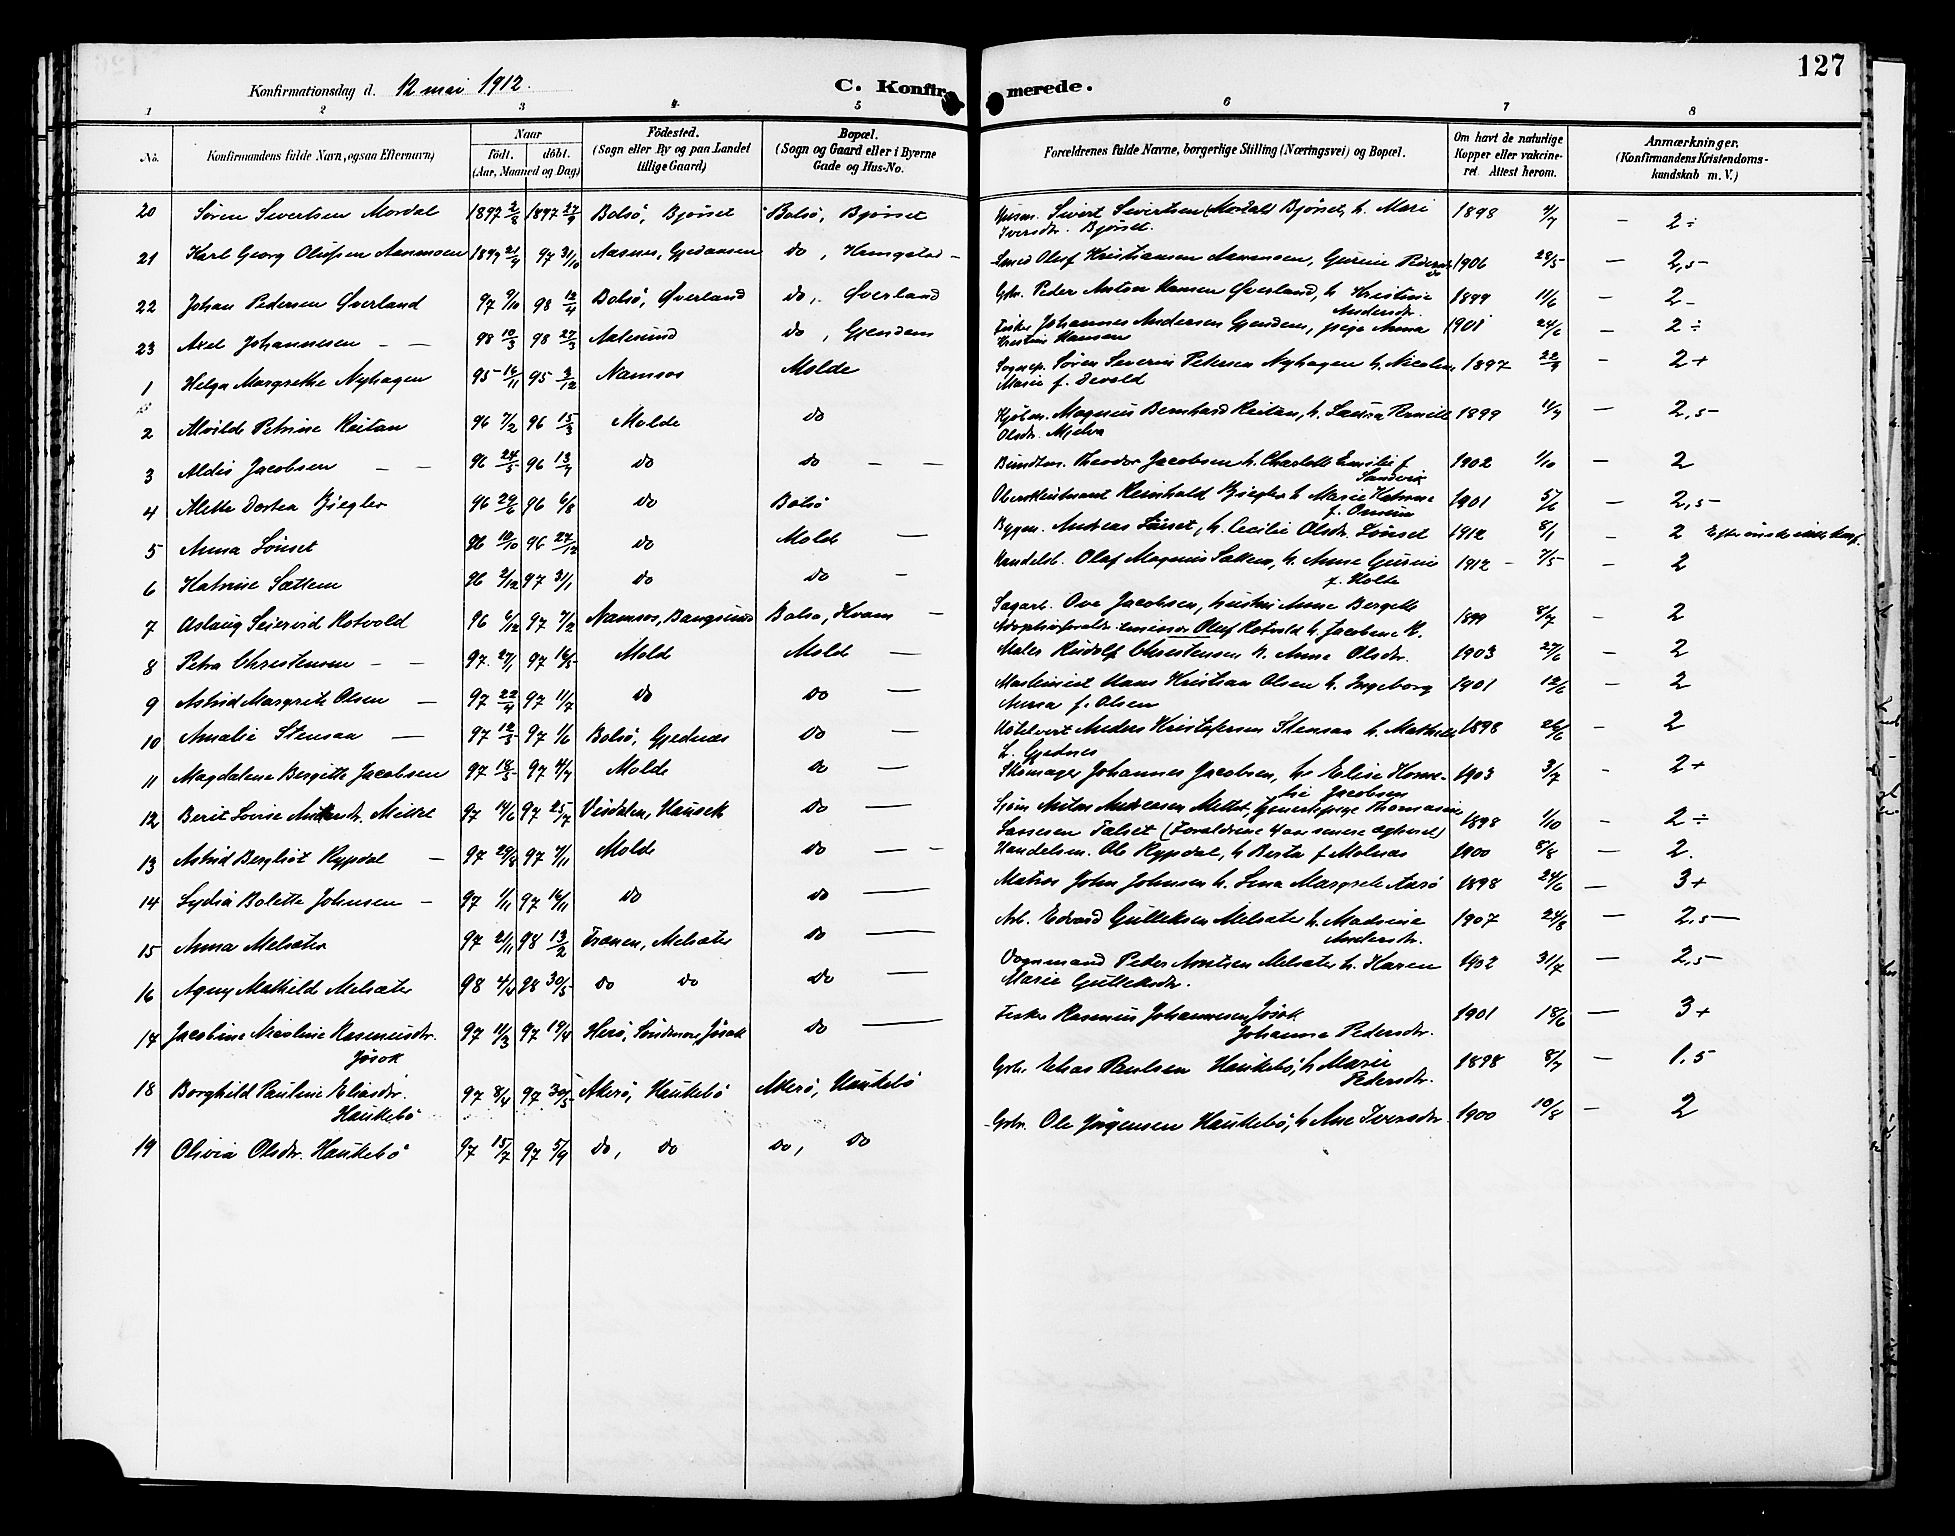 127
Konfirmationsdag d. 12 mai 1912.
C. Konfirmerede.
1 2 3 4 5 6 7 8
No. Konfirmandens fulde Navn, ogsaa Efternavn) Naar födt. döbt. (Aar, Maaned og Dag) Födested. (Sogn eller By og paa Landet tillige Gaard) Bopæl. (Sogn og Gaard eller i Byerne Gade og Hus-No. Forældrenes fulde Navne, borgerlige Stilling (Næringsvei) og Bopæl. Om havt de naturlige Kopper eller vakcineret. Attest herom. Anmærkninger. (Konfirmandens Kristendomskundskab m. V.)
20 Søren Sivertsen Mordal 1897 2/8 1897 27/9 Bolsö, Bjørset Bolsö, Bjørset Husm. Sivert Sivertsen (Mordal) Bjørset, h. Mari 1898 4/7 — 2 ÷
Iversdtr. Bjørset.
21 Karl Georg Olufsen Aanmoen 1897 21/9 97 31/10 do, Smed Oluf Kristiansen Aanmoen, Gurine 1906 28/5 — 2,5 —
22 Johan Pedersen Øverland 97 9/10 98 12/4 Bolsö, Øverland do, Øverland Gbr. Peder Anton Hansen Øverland, h. Kristine 1899 11/6 — 2 —
Andersdtr.
23 Axel Johannesen — — 98 10/3 98 27/3 Aalesund do, Gjendem Fisker Johannes Andersen Gjendem, pige Anna 1901 24/6 — 2 ÷
Kristine Hansen
1 Helga Margrethe Nyhagen 95 16/11 95 2/12 Namsos Molde Sognepr. Søren Severin Petersen Nyhagen h. Nicoline 1897 22/9 — 2 +
Marie f. Devold
2 Alvilde Petrine Reitan 96 7/2 96 15/3 Molde do Kjøbm. Magnus Bernhard Reitan, h. Laura Pernille 1899 11/9 — 2,5 —
Olsdtr. Mjelva
3 Aldis Jacobsen — — 96 24/5 96 13/9 do do — — Bundtm. Theodor Jacobsen h. Charlotte Emilie f. 1902 1/10 — 2
Sandvik
4 Alette Dortea Ziegler 96 29/6 96 6/8 do Bolsö Oberstleutnant Reinhold Ziegler h. Marie Katrine 1901 5/6 — 2,5 —
5 Anna Lønset 96 10/10 96 27/12 do Molde — Bygm. Andreas Lønset, h. Cecilie Olsdtr. Lønset 1912 8/1 — 2 Efter ønske
6 Katrine Sættem 96 2/12 97 31/1 do do — Handelsb. Olaf Magnus Sættem, h. Anne Gurine 1912 — 7/5 — 2
f. Holte
7 Aslaug Seiervid Rotvold 96 6/12 97 7/12 Namsos, Bangsund Bolsø, Kvam — Sagarb. Ove Jacobsen, hustru Anne Bergette 1899 8/7 — 2
Adoptivforældr. emissær Oluf Rotvold h. Jacobine R.
8 Petra Christensen — — 97 27/1 97 16/5 Molde Molde — Maler Rudolf Christensen h. Anne Olsdtr. 1903 27/6 — 2
9 Astrid Margrete Olsen — 97 22/4 97 11/7 do do — Maskinist Hans Kristian Olsen h. Ingeborg 1901 12/6 — 2
Anna f. Olsen
10 Amalie Stensaa — 97 12/3 97 1/6 Bolsö, Gjednæs do — Hôtelvert Anders Kristofersen Stensaa h. Mathilde 1898 26/6 — 2
L. Gjednes
11 Magdalena Bergitte Jacobsen 97 18/5 97 4/7 Molde do — Skomager Johannes Jacobsen, h. Elise 1903 3/7 — 2 +
Jacobsen
12 Berit Lovise Mittet 97 14/6 97 25/7 Veidalen, Hausek do — 1898 1/10 — 2 ÷
Talset (Forældrene var senere ægteviet)
13 Astrid Bergliot Rypdal — 97 29/8 97 7/11 Molde do — — Handelsm. Ole Rypdal, h. Berta f. Molnæs 1900 8/8 — 2.
14 Lydia Bolette Johnsen — 97 1/11 97 16/11 do do — Matros John Johnsen h. Lina Margrete Aarø 1898 24/6 — 3 +
15 Anna Melsæter 97 21/11 98 13/2 Frænen, Melsæter do — Arb. Edvard Gulleksen Melsæter h. Madsine 1907 24/8 — 2,5 —
Andersdtr.
16 Agny Mathild Melsæter 98 4/4 98 30/5 do do do — Vognmand Peder Arntsen Melsæter h. Karen 1902 31/7 — 2,5 —
Marie Gulleksdtr.
17 Jacobine Nicoline Rasmusdtr. 97 11/3 97 19/4 Herø, Søndmør, Jøsok do — Fisker Rasmus Johannesen Jøsok 1901 18/6 — 3 +
Jøsok Johanna Pedersdtr.
18 Borghild Pauline Eliasdtr. 97 8/4 97 30/5 Akerö, Haukebö Akerö, Haukebö Gbr. Elias Paulsen Haukebö, h. Marie 1898 8/7 — 1.5
Haukebö Pedersdtr.
19 Olivia Olsdtr. Haukebö 97 15/7 97 5/9 do, do do, do Gbr. Ole Jørgensen Haukebö, h. Ane Iversdtr. 1900 10/8 — 2